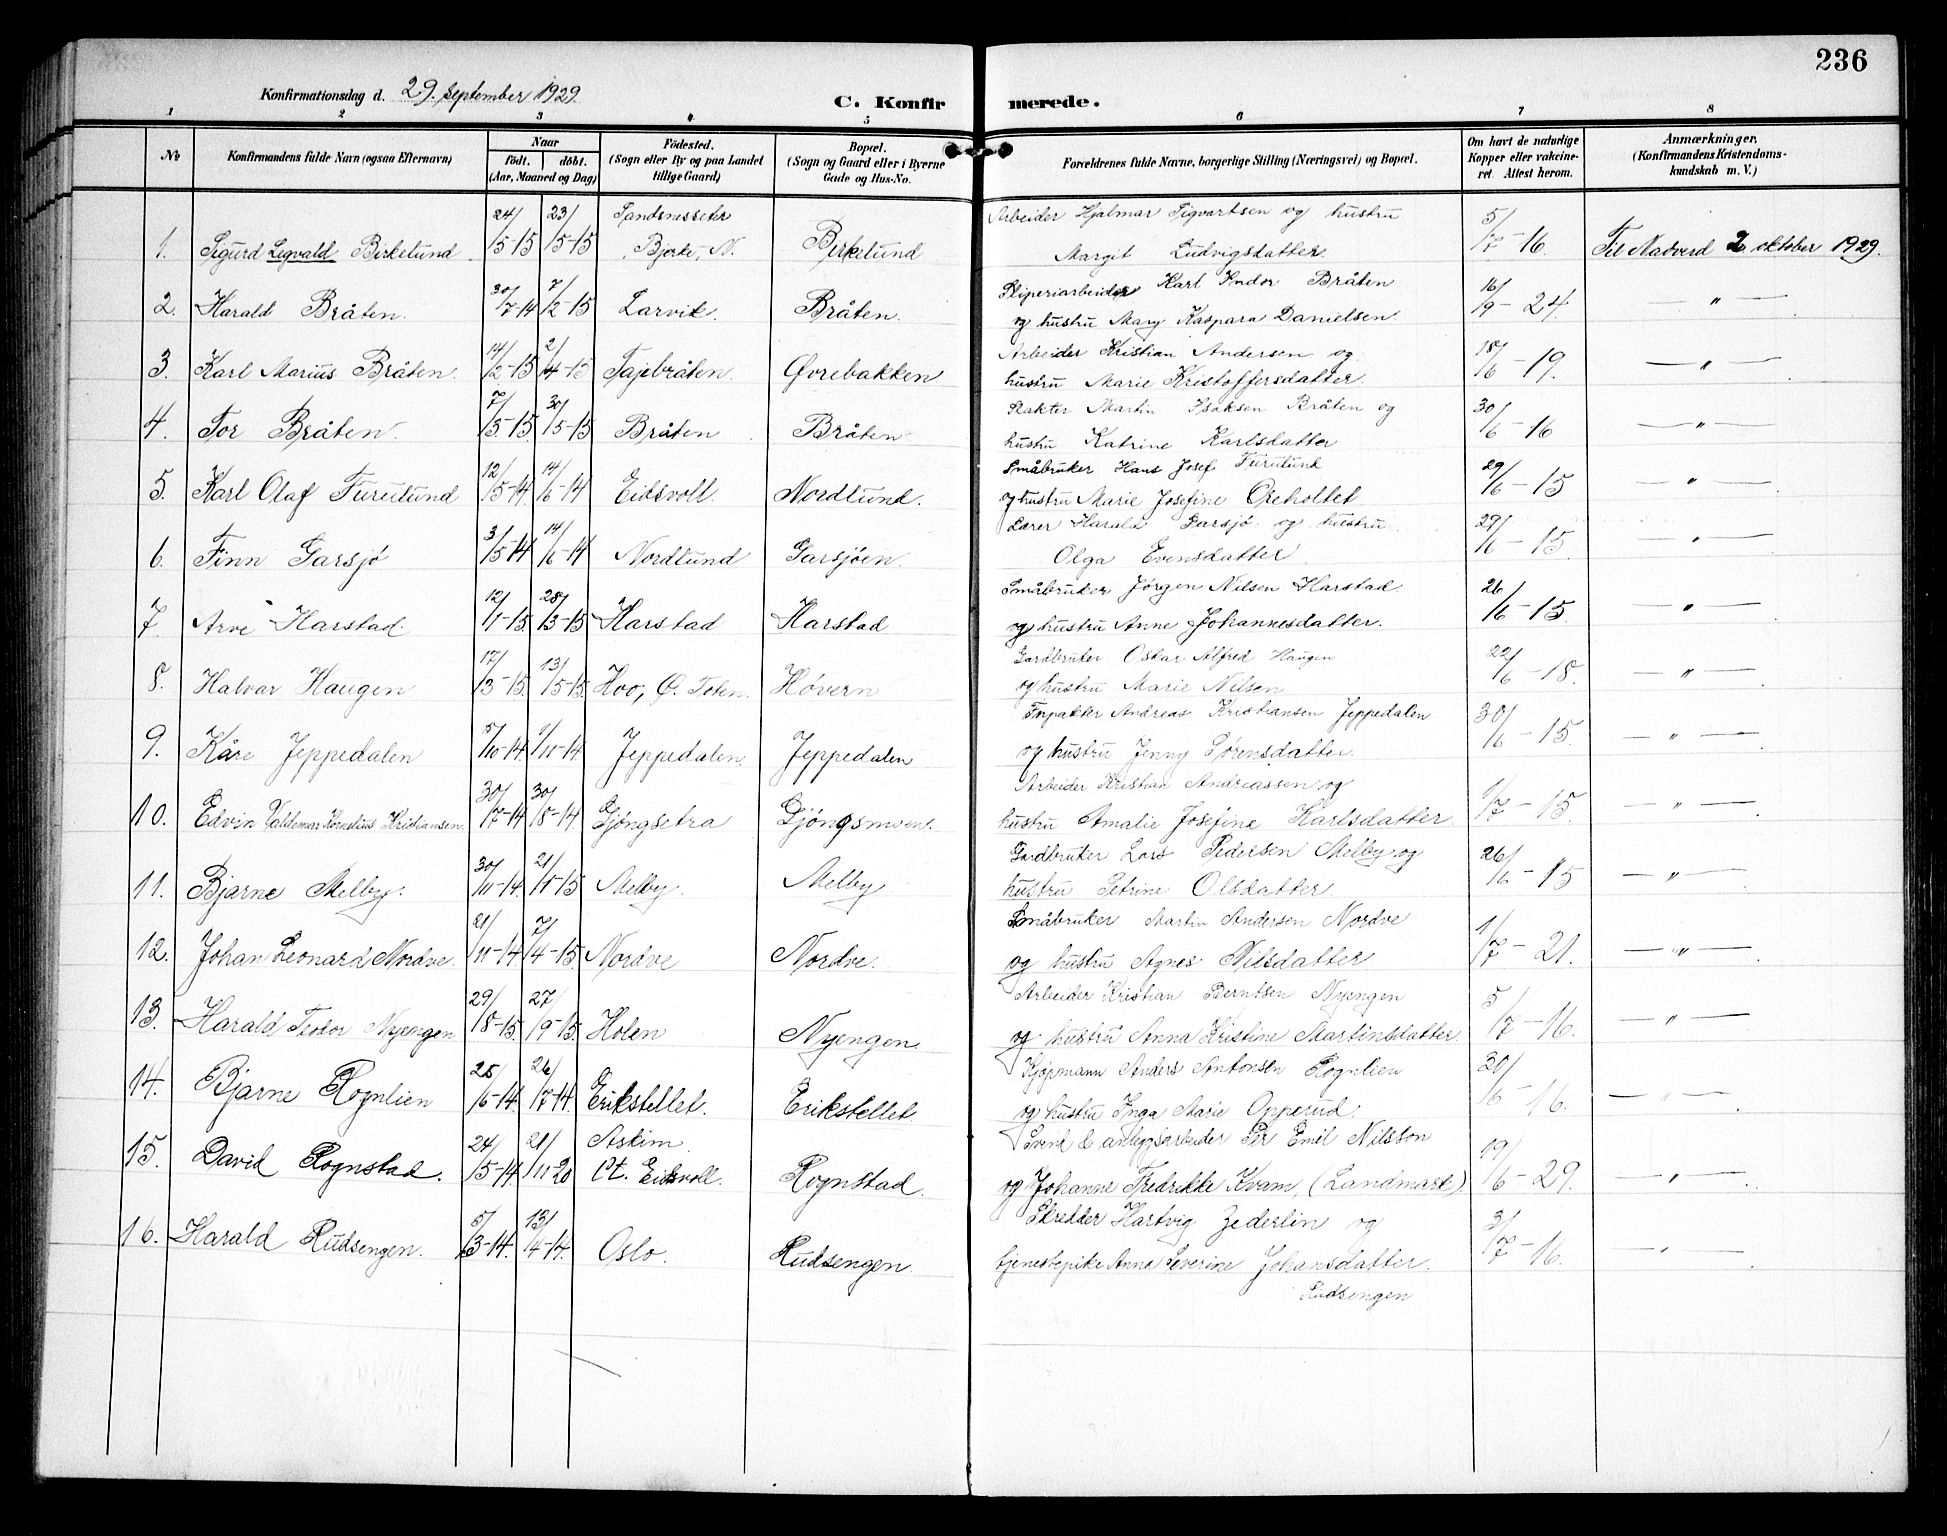 236
Konfirmationsdag d. 29. september 1929.
C. Konfirmerede.
1 2 3 4 5 6 7 8
No
Konfirmandens fulde Navn (ogsaa Efternavn)
Naar
født. døbt.
(Aar, Maaned og Dag)
Fødested.
(Sogn eller By og paa Landet
tillige Gaard)
Bopæl.
(Sogn og Gaard eller i Byerne
Gade og Hus-No.
Forældrenes fulde Navne, borgerlige Stilling (Næringsvei) og Bopæl.
Om havt de naturlige
Kopper eller vakcine-
ret. Attest herom.
Anmærkninger,
(Konfirmandens Kristendoms-
kundskab m. V.)
1. Sigurd Birkelund 24/5-15 23/5-15 Bjerke, N. Birkelund
Arbeider Hjalmar Sigvartsen og hustru
Margit Ludvigsdatter 5/7-16 Til Nadverd 2 oktober 1929.
2. Harald Bråten. 30/7-14 7/2-15 Larvik. Bråten.
Sliperiarbeider Karl Indor Bråten
og hustru Mary Kaspara Danielsen. 16/9-24. — " —
3. Karl Marius Bråten. 14/2-15 2/4-15 Tajebråten. Øvrebakken
Arbeider Kristian Andersen og
hustru Marie Kristoffersdatter. 18/6-19. — " —
4. Tor Bråten. 7/5-15 30/5-15 Bråten Bråten
Martin Isaksen Bråten og
hustru Katrine Karlsdatter 30/6-16 — " —
5. Karl Olaf Furulund 12/5-14 14/6-14 Eidsvoll Nordlund.
Småbruker Hans Josef Furulund
og hustru Marie Josefine Oreholtet 29/6-15 — " —
6. Finn Garsjø 3/5-14 14/6-14 Nordlund Garsjøen.
Lærer Harald Garsjø og hustru
Olga Evensdatter 29/6-15. — " —
7. Arve Harstad 12/1-15 28/3-15 Harstad Harstad
Småbruker Jörgen Nilsen Harstad
og hustru Anne Johannesdatter. 26/6-15. — " —
8. Halvar Haugen 17/3-15. 13/5-15. Hoo, Ø. Toten. Høvern
Gardbruker Oskar Alfred Haugen
og hustru Marie Nilsen 22/6-18. — " —
9. Kåre Jeppedalen 5/10-14 1/11-14 Jeppedalen. Jeppedalen
Forpakter Andreas Kristiansen Jeppedalen
og hustru Jenny Sørensdatter. 30/6-15. — " —
10. Edvin Valdemar Kornelius Kristiansen. 30/7-14 30/8-14 Gjöngsetra Gjöngsmoen.
Arbeider Kristian Andreassen og
hustru Amalie Josefine Karlsdatter. 1/7-15. — " —
11. Bjarne Melby. 30/11-14. 21/1-15 Melby. Melby
Gardbruker Lars Pedersen Melby og
hustru Petrine Olsdatter. 26/6-15 — " —
12. Johan Leonard Nordve. 21/11-14 7/4-15. Nordve Nordve.
Småbruker Martin Andersen Nordve
og hustru Agnes Nilsdatter 1/7-21. — " —
13. Harald Teodor Nyengen 29/8-15. 27/9-15. Holen Nyengen.
Arbeider Kristian Berntsen Nyengen
og hustru Anna Kristine Martinsdatter. 5/7-16. — " —
14. Bjarne Rognlien 25/6-14. 26/7-14. Erikstellet. Erikstellet.
Kjøpmann Anders Antonsen Rognlien
og hustru Inga Marie Opperud. 30/6-16. — " —
15. David Rognstad. 24/5-14 21/11-20 Askim
Pt. Eidsvoll. Rognstad.
Svensk anleggsarbeider Per Emil Nilsson
og Johanne Fredrikke Kvam, (Landmark). 19/6-29. — " —
16. Harald Rudsengen. 5/3-14. 13/4-14. Oslo. Rudsengen.
Skredder Hartvig Zederlin og
tjenestepike Anna Severine Johansdatter. 3/7-16. — " —
Rudsengen